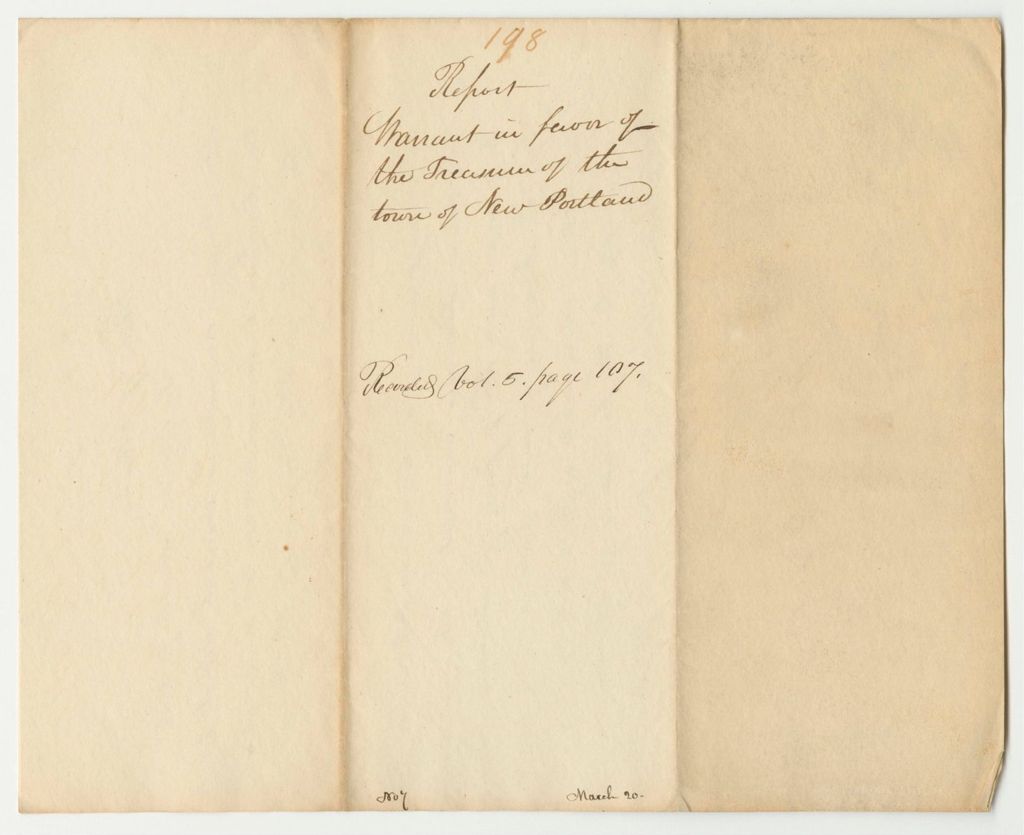 198
Report
Warrant in favor of
the Treasurer of the
town of New Portland
Recorded Vol. 5. page 107.
No 7
March 20-